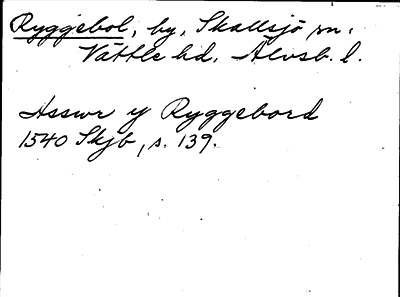 Ryggebol, by, Skallsjö sn.
Vättle hd. Älvsb. l.
Asswr y Ryggebord
1540 Skjb, s. 139.